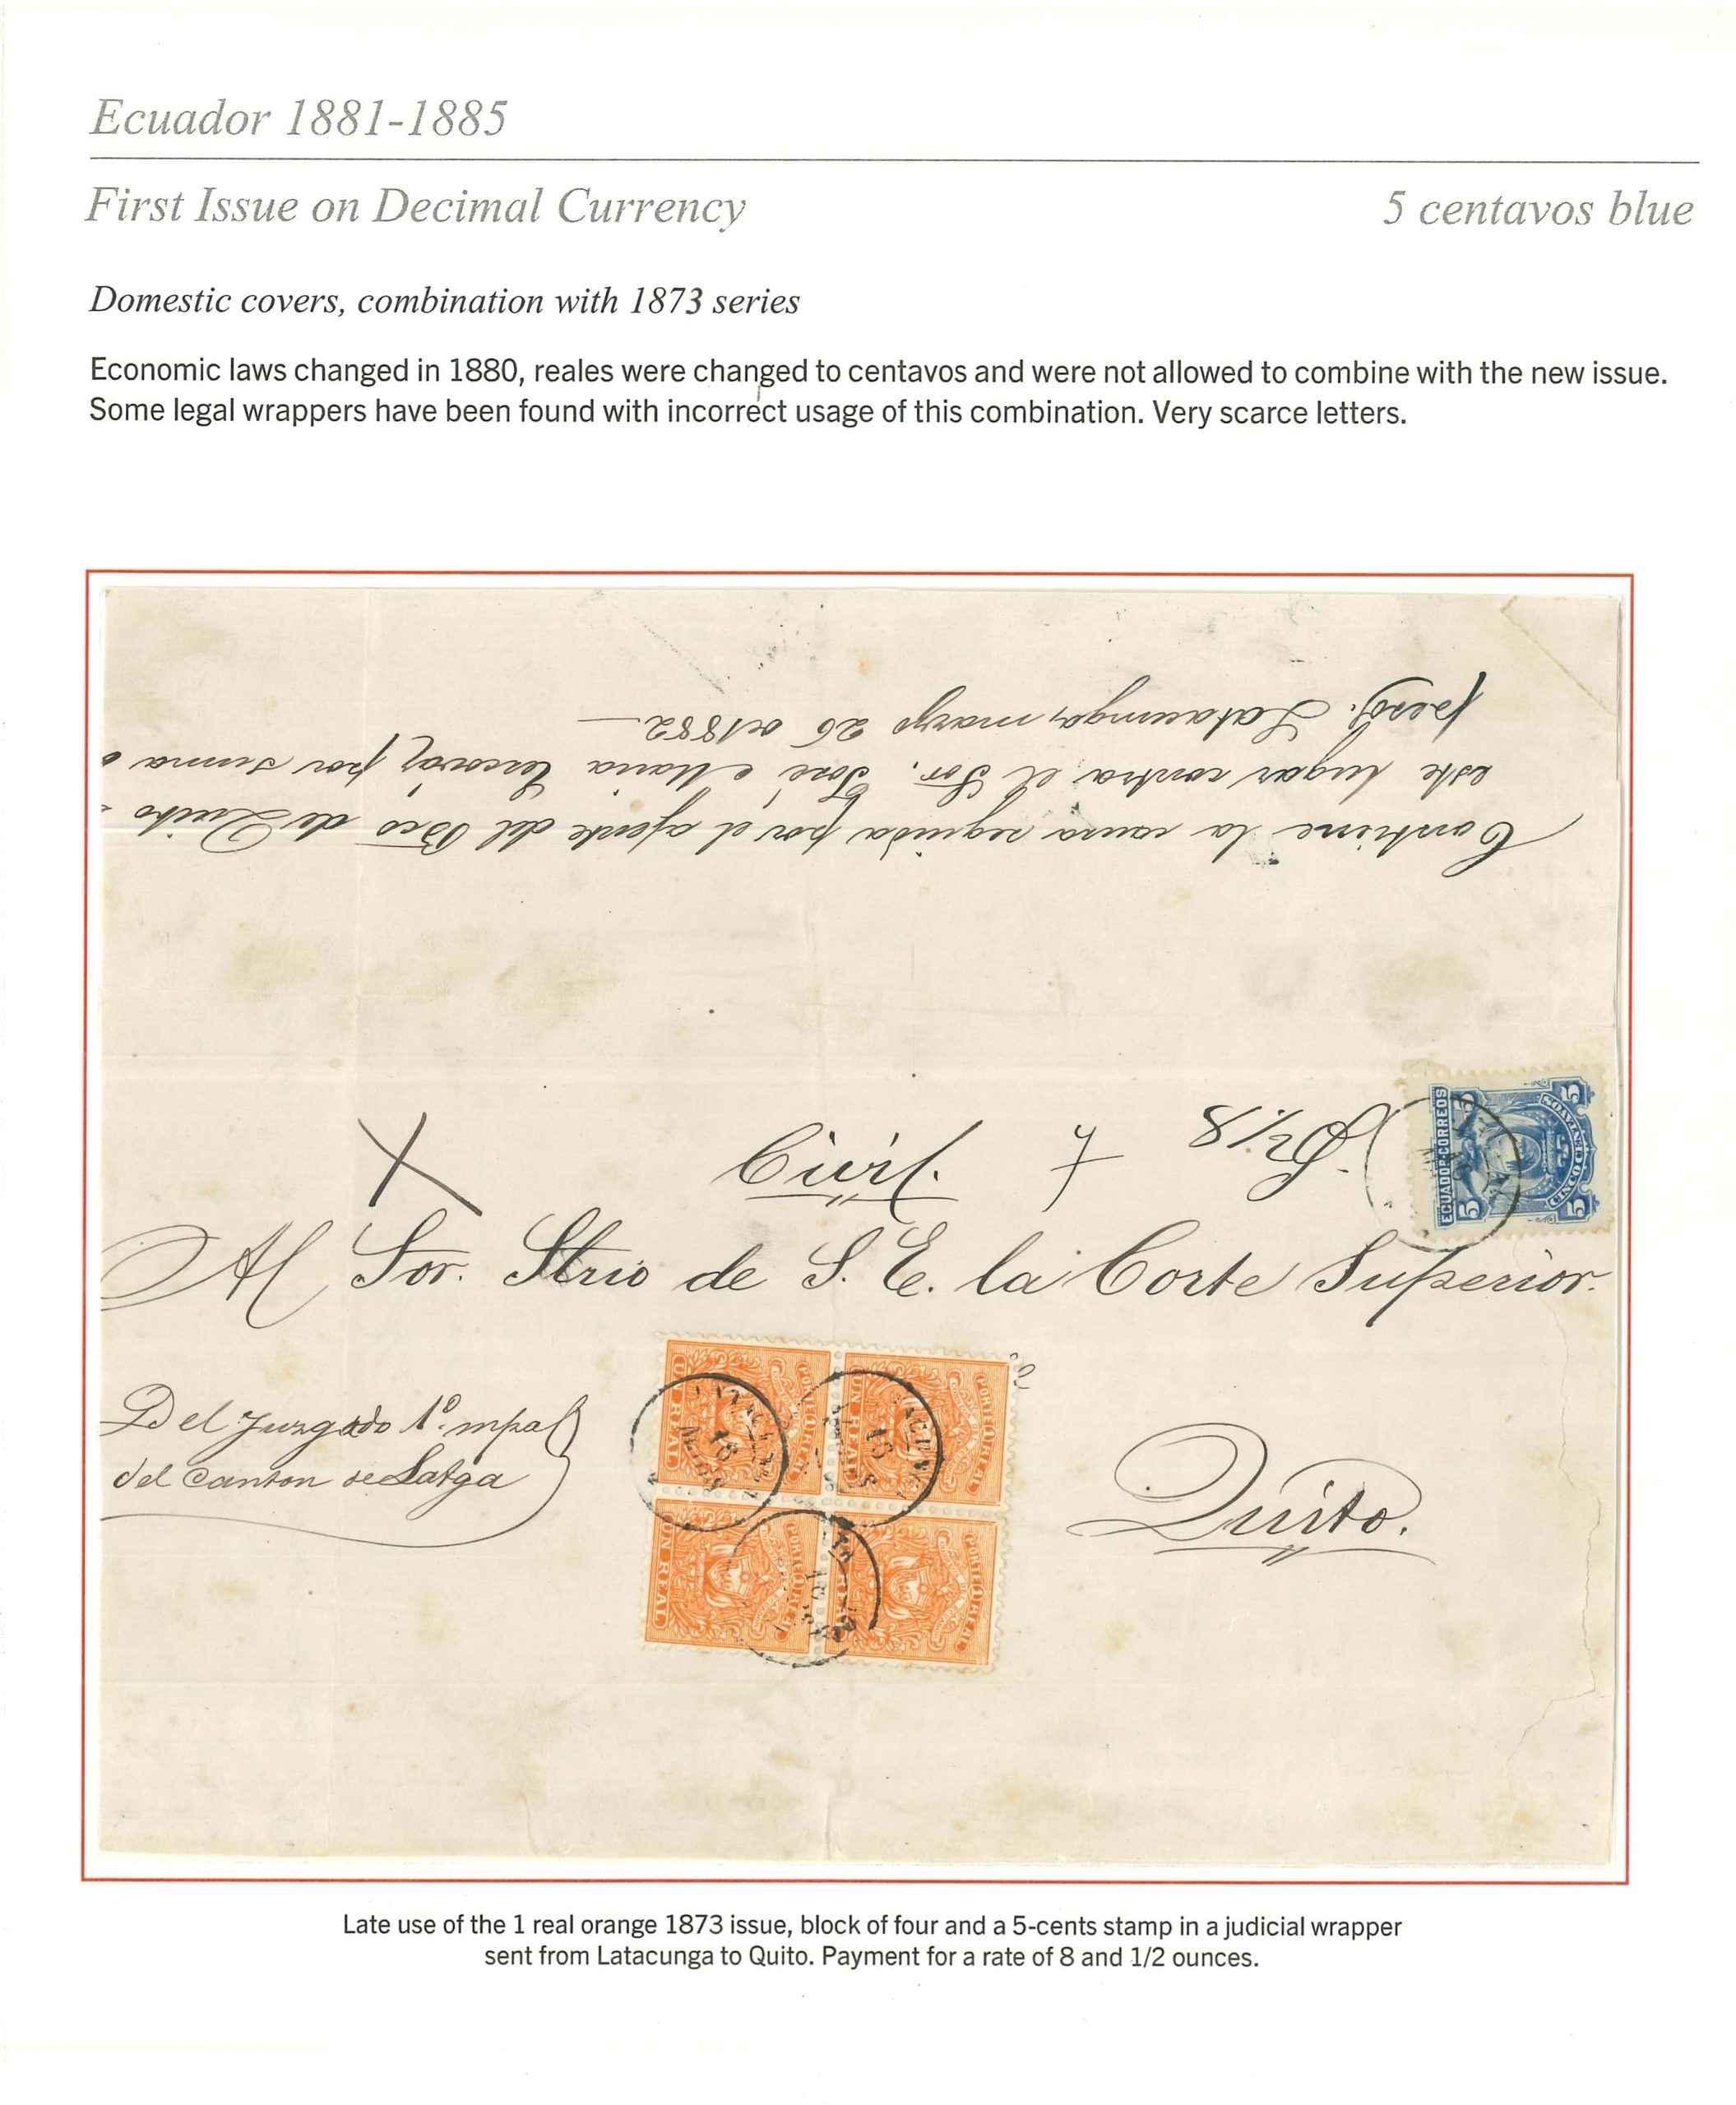 Ecuador 1881-1885
First Issue on Decimal Currency
5 centavos blue
Domestic covers, combination with 1873 series
Economic laws changed in 1880, reales were changed to centavos and were not allowed to combine with the new issue.
Some legal wrappers have been found with incorrect usage of this combination. Very scarce letters.
Contiene la causa seguida por el ajente del Bco de Quito
este lugar contra el Sor. José Maria por suma
pesos. Latacunga, marzo 26 de 1882
Civil. 8 1/2
ECUADOR CORREOS
5 CINCO CENTAVOS 5
Al Sor. Strio de S. E. la Corte Superior.
UN REAL
UN REAL
Del Juzgado 1º mpal
del Canton de Latga
Quito.
UN REAL
Late use of the 1 real orange 1873 issue, block of four and a 5-cents stamp in a judicial wrapper
sent from Latacunga to Quito. Payment for a rate of 8 and 1/2 ounces.